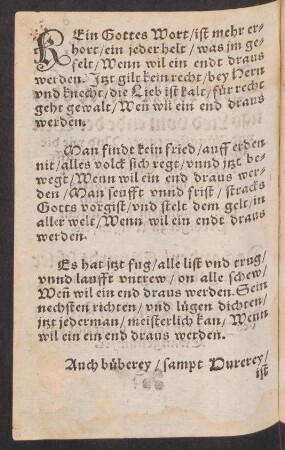 KEin Gottes Wort/ist mehr er-
hort/ein jeder helt/was jm ge-
felt/Wenn wil ein endt draus
werden. Jtzt gilt kein recht/bey Hern
vnd knecht/die Lieb ist kalt/für recht
geht gewalt/Weñ wil ein end draus
werden.
Man findt kein fried/auff erden
nit/alles volck sich regt/vnnd jtzt be-
wegt/Wenn wil ein end draus wer-
den/Man seufft vnnd frist/stracks
Gotts vorgist/vnd stelt dem gelt/in
aller welt/Wenn wil ein endt draus
werden.
Es hat jtzt fug/alle list vnd trug/
vnnd laufft vntrew/on alle schew/
Weñ wil ein end draus werden. Sein
nechsten richten/vnd lügen dichten/
jtzt jederman/meisterlich kan/Wenn
wil ein ein end draus werden.
Auch büberey/sampt Hurerey/
ist